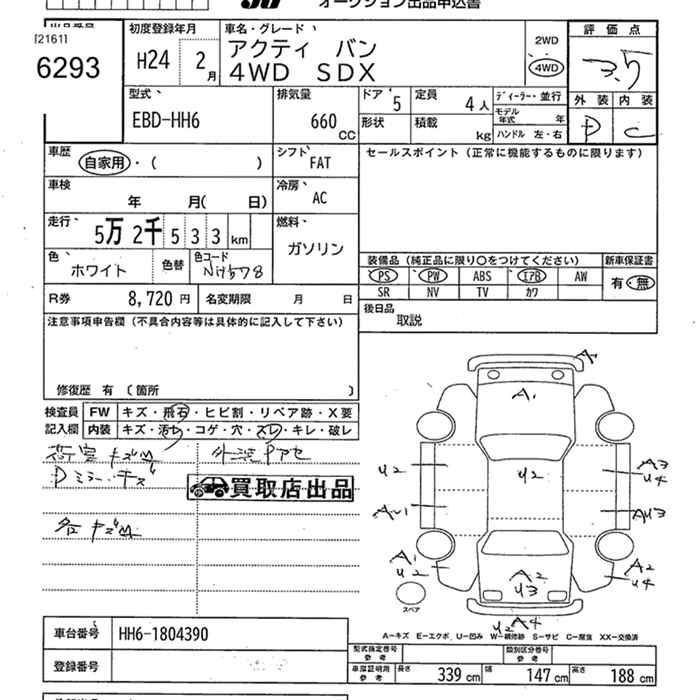 オークション出品申込書
出品番号
[2161]
6293
初度登録年月
H24 2月
車名・グレード
アクティ バン
4WD SDX
2WD
4WD
評価点
3.5
外装 内装
D C
型式
EBD-HH6
排気量
660 cc
ドア 5
形状
定員 4人
積載 kg
ディーラー・並行
モデル年式 年
ハンドル 左・右
車歴
自家用・( )
シフト
FAT
セールスポイント(正常に機能するものに限ります)
車検
年 月( 日)
冷房
AC
走行
5万2千533km
燃料
ガソリン
色
ホワイト
色替
色コード
NH578
装備品(純正品に限り○をつけてください)
新車保証書
PS PW ABS エアB AW
有・無
SR NV TV カワ
R券 8,720円
名変期限 月 日
後日品
取説
注意事項申告欄(不具合内容等は具体的に記入して下さい)
修復歴 有 〔箇所 〕
検査員
記入欄
FW キズ・飛石・ヒビ割・リペア跡・X要
内装 キズ・汚レ・コゲ・穴・スレ・キレ・破レ
荷室キズM
外装Pアセ
Dミラーキズ
買取店出品
各キズM
A
A1
U2
U2
A3
U4
AU1
AU3
A1
U2
A2
U3
A2
U4
U2 A4
スペア
A-キズ E-エクボ U-凹み W-補修跡 S-サビ C-腐食 XX-交換済
車台番号 HH6-1804390
型式指定番号
参考
類別区分番号
参考
登録番号
車庫証明用
参考
長さ 339 cm
幅 147 cm
高さ 188 cm